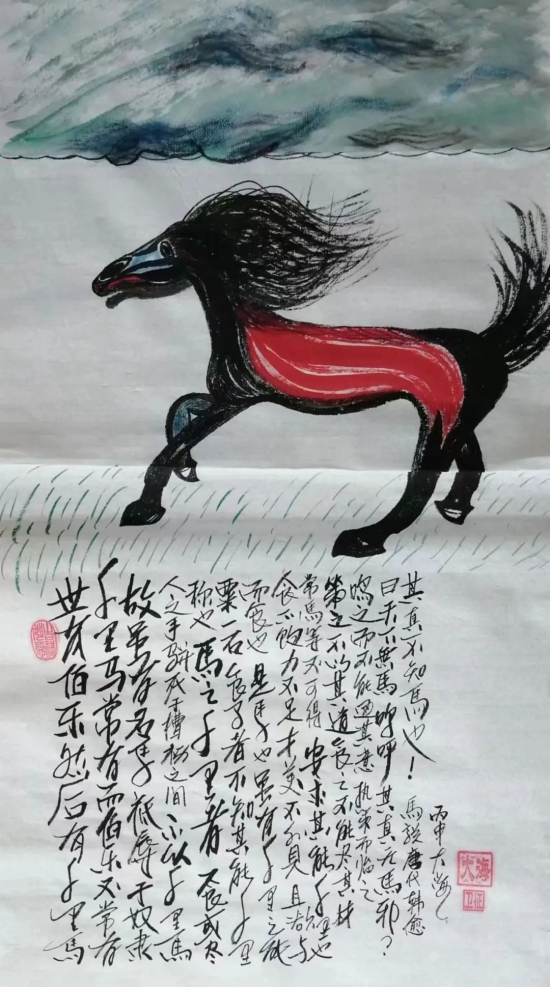 世有伯乐然后有千里馬
千里马常有而伯乐不常有
故虽有名馬祗辱于奴隶
人之手骈死于槽枥之间不以千里馬
称也馬之千里者食或尽
粟一石食马者不知其能千里
而食也是馬也虽有千里之能
食不饱力不足才美不外見且欲与
常馬等不可得安求其能千里也
策之不以其道食之不能尽其材
鸣之而不能通其意执策而临之
曰天下無馬呜呼其真无馬邪？
其真不知馬也！
馬说唐代韩愈
丙申大海